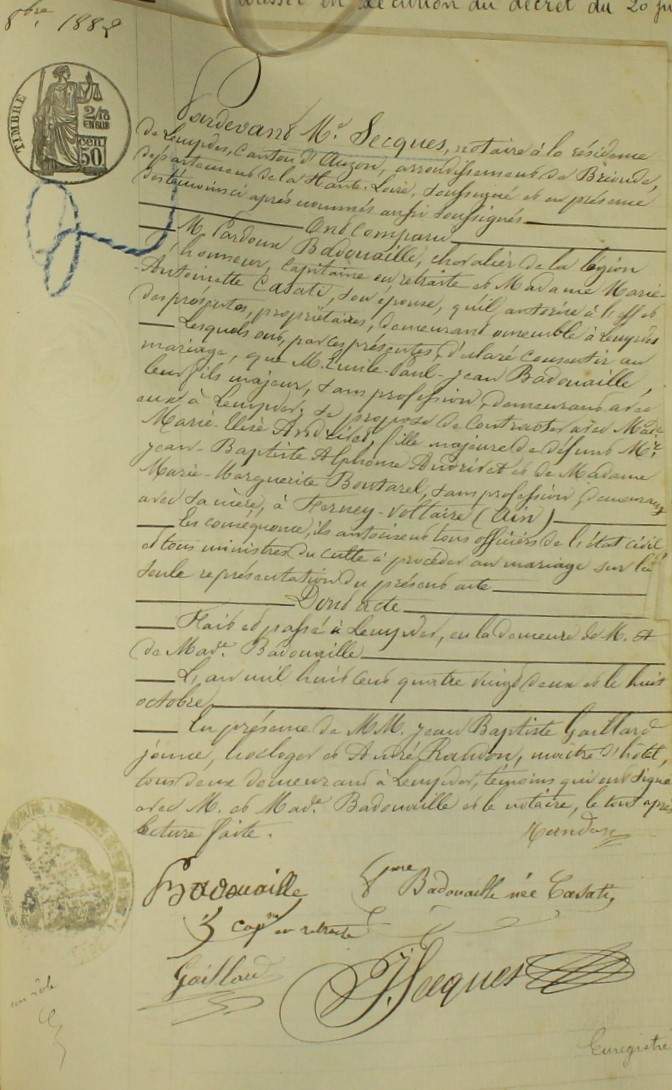 8bre 1882
en exécution du décret du 20
TIMBRE
2/10
EN SUS
50
CEN
Pardevant Me Secques, notaire à la résidence
de Lempdes, Canton d'Auzon, arrondissement de Brioude,
département de la Haute-Loire, soussigné et en présence
des témoins ci après nommés aussi soussignés
Ont Comparu
M. Pardoux Badouaille, chevalier de la légion
d'honneur, Capitaine en retraite et Madame Marie-
Antoinette Casati, son épouse, qu'il autorise à l'effet
des présentes, propriétaires, demeurant ensemble à Lempdes
Lesquels ont, par ces présentes, déclaré consentir au
mariage, que M. Emile-Paul-Jean Badouaille,
leur fils majeur, sans profession, demeurant avec
eux à Lempdes, se propose de contracter avec Melle
Marie-Andrivet, fille majeure de défunt Mr
Jean-Baptiste Alphonse Andrivet et de Madame
Marie-Marguerite Boutarel, sans profession, demeurant
avec sa mère, à Ferney-Voltaire (Ain)
En conséquence, ils autorisent tous officiers de l'état civil
et tous ministres du culte à procéder au mariage sur la
seule représentation du présent acte
Dont acte
Fait et passé à Lempdes, en la demeure de M. et
de Made Badouaille
L'an mil huit cent quatre vingt deux et le huit
octobre,
En présence de MM. Jean Baptiste Gaillard
jeune, horloger et André Randon, maître d'hôtel,
tous deux demeurant à Lempdes, témoins qui ont signé
avec M. et Made Badouaille et le notaire, le tout après
lecture faite.
Randon
Badouaille
Badouaille née Casati
capne en retraite
Gaillard
J. Secques
Enregistré